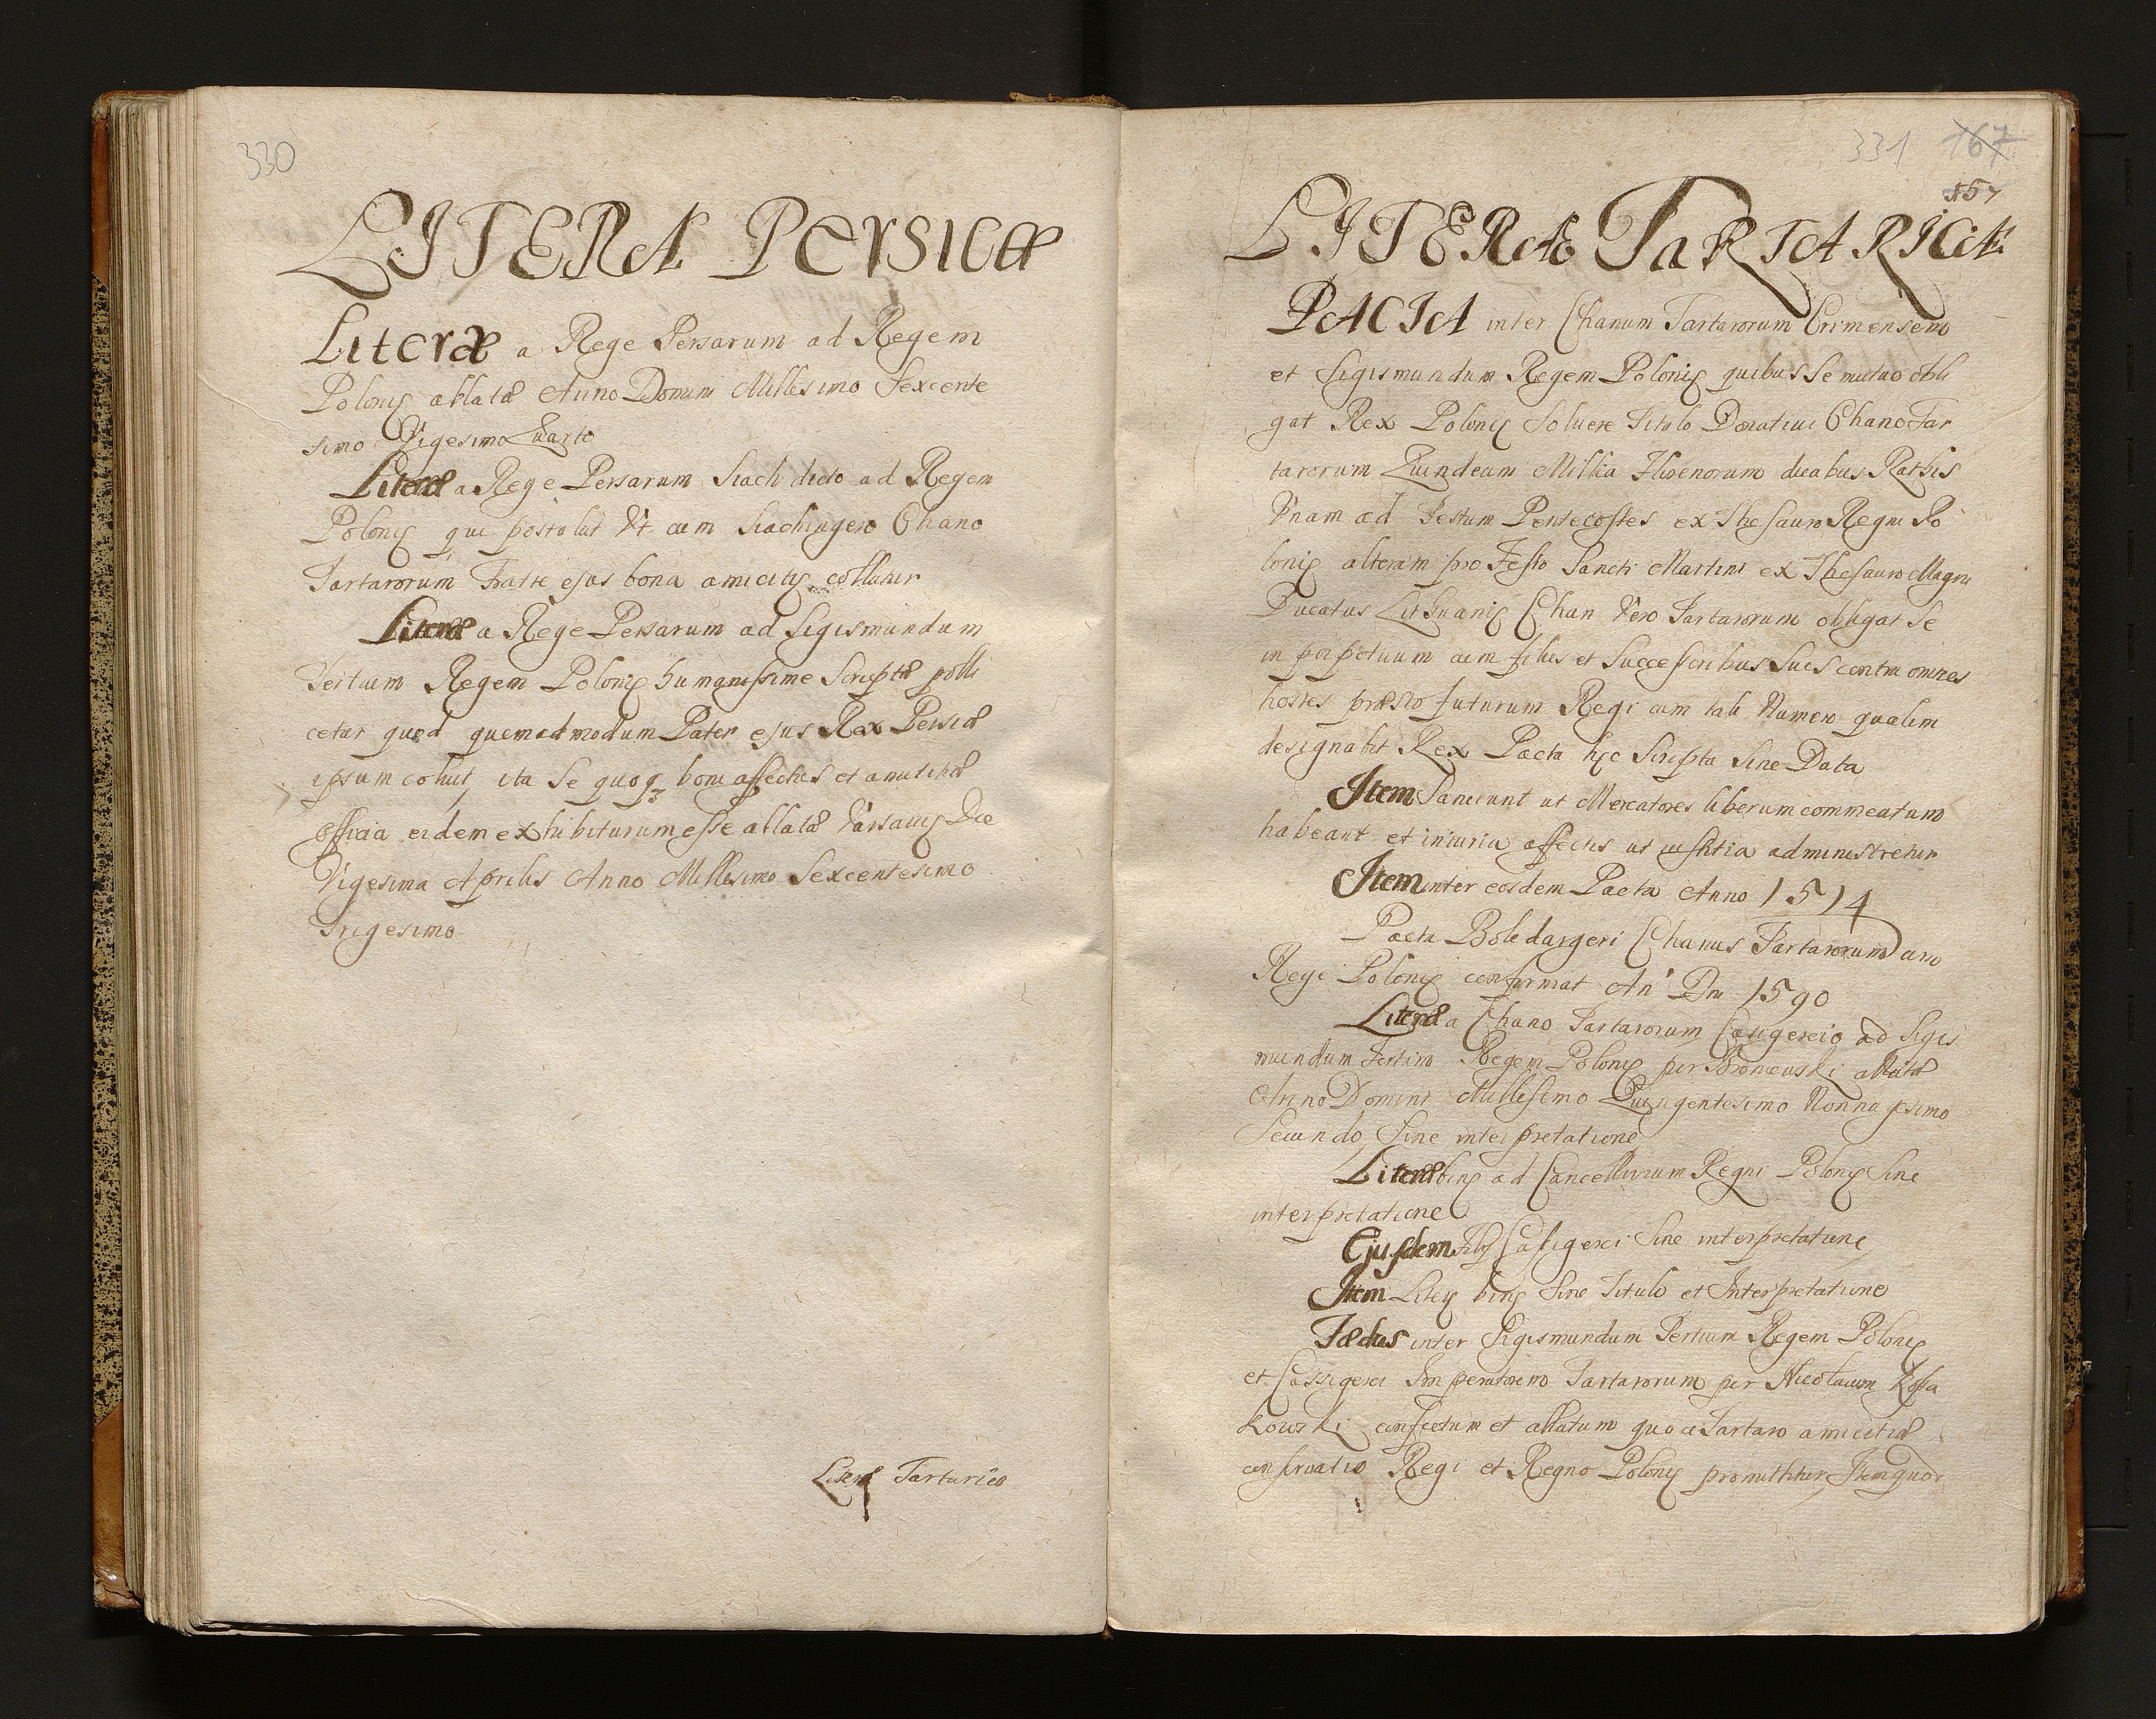 330
LITERÆ PERSICÆ
Literæ a Rege Persarum ad Regem
Polonię allatæ Anno Domini Millesimo Sexcente
simo Vigesimo Quarto
Literæ a Rege Persarum Siach dicto ad Regem
Polonię qui postulat Vt cum Siachingero Chano
Tartarorum Fratre ejus bona amicitię collatur
Literæ a Rege Persarum ad Sigismundum
Tertium Regem Polonię humanissime Scriptæ polli
cetur quod quemadmodum Pater ejus Rex Persiæ
ipsum coluit, ita Se quoqз boni affectus et amicitiæ
officia eidem exhibiturum esse allatæ Varsauię Die
Vigesima Aprilis Anno Millesimo Sexcentesimo
Trigesimo
Literę Tartaricæ
331 167
157
LITERÆ TARTARICÆ
PACTA inter Chanum Tartarorum Crimensem
et Sigismundum Regem Polonię quibus Se mutuo obli
gat Rex Polonię Soluere Titulo Donatiui Chano Tar
tarorum Quindecim Millia Florenorum duabus Rathis
Vnam ad Festum Pentecostes ex Thesauro Regni Po
lonię alteram pro Festo Sancti Martini ex Thesauro Magni
Ducatus Lithuanię Chan Vero Tartarorum obligat Se
in perpetuum cum filiis et Successoribus Suis contra omnes
hostes præsto futurum Regi cum tali Numero qualem
designabit Rex Pacta hęc Scripta Sine Data
Item Sanciunt ut Mercatores liberum commeatum
habeant et iniuria affectis ut iustitia administretur
Item inter eosdem Pacta Anno 1514
Pacta Boledargeri Chanus Tartarorum cum
Rege Polonię confirmat An Dni 1590
Literæ a Chano Tartarorum Casigereio ad Sigis
mundum Tertium Regem Polonię per Broneuski allatæ
Anno Domini Millesimo Quingentesimo Nonnagesimo
Secundo Sine interpretatione
Literæ binę ad Cancellarium Regni Polonię Sine
interpretatione
Ejusdem Filii Casigerei Sine interpretatione
Item Literę binę Sine Titulo et Interpretatione
Fædus inter Sigismundum Tertium Regem Polonię
et Cassigerei Imperatorem Tartarorum per Nicolaum Kossa
kowski confectum et allatum quo a Tartaro amicitiæ
conseruatio Regi et Regno Polonię promittitur, Item quod